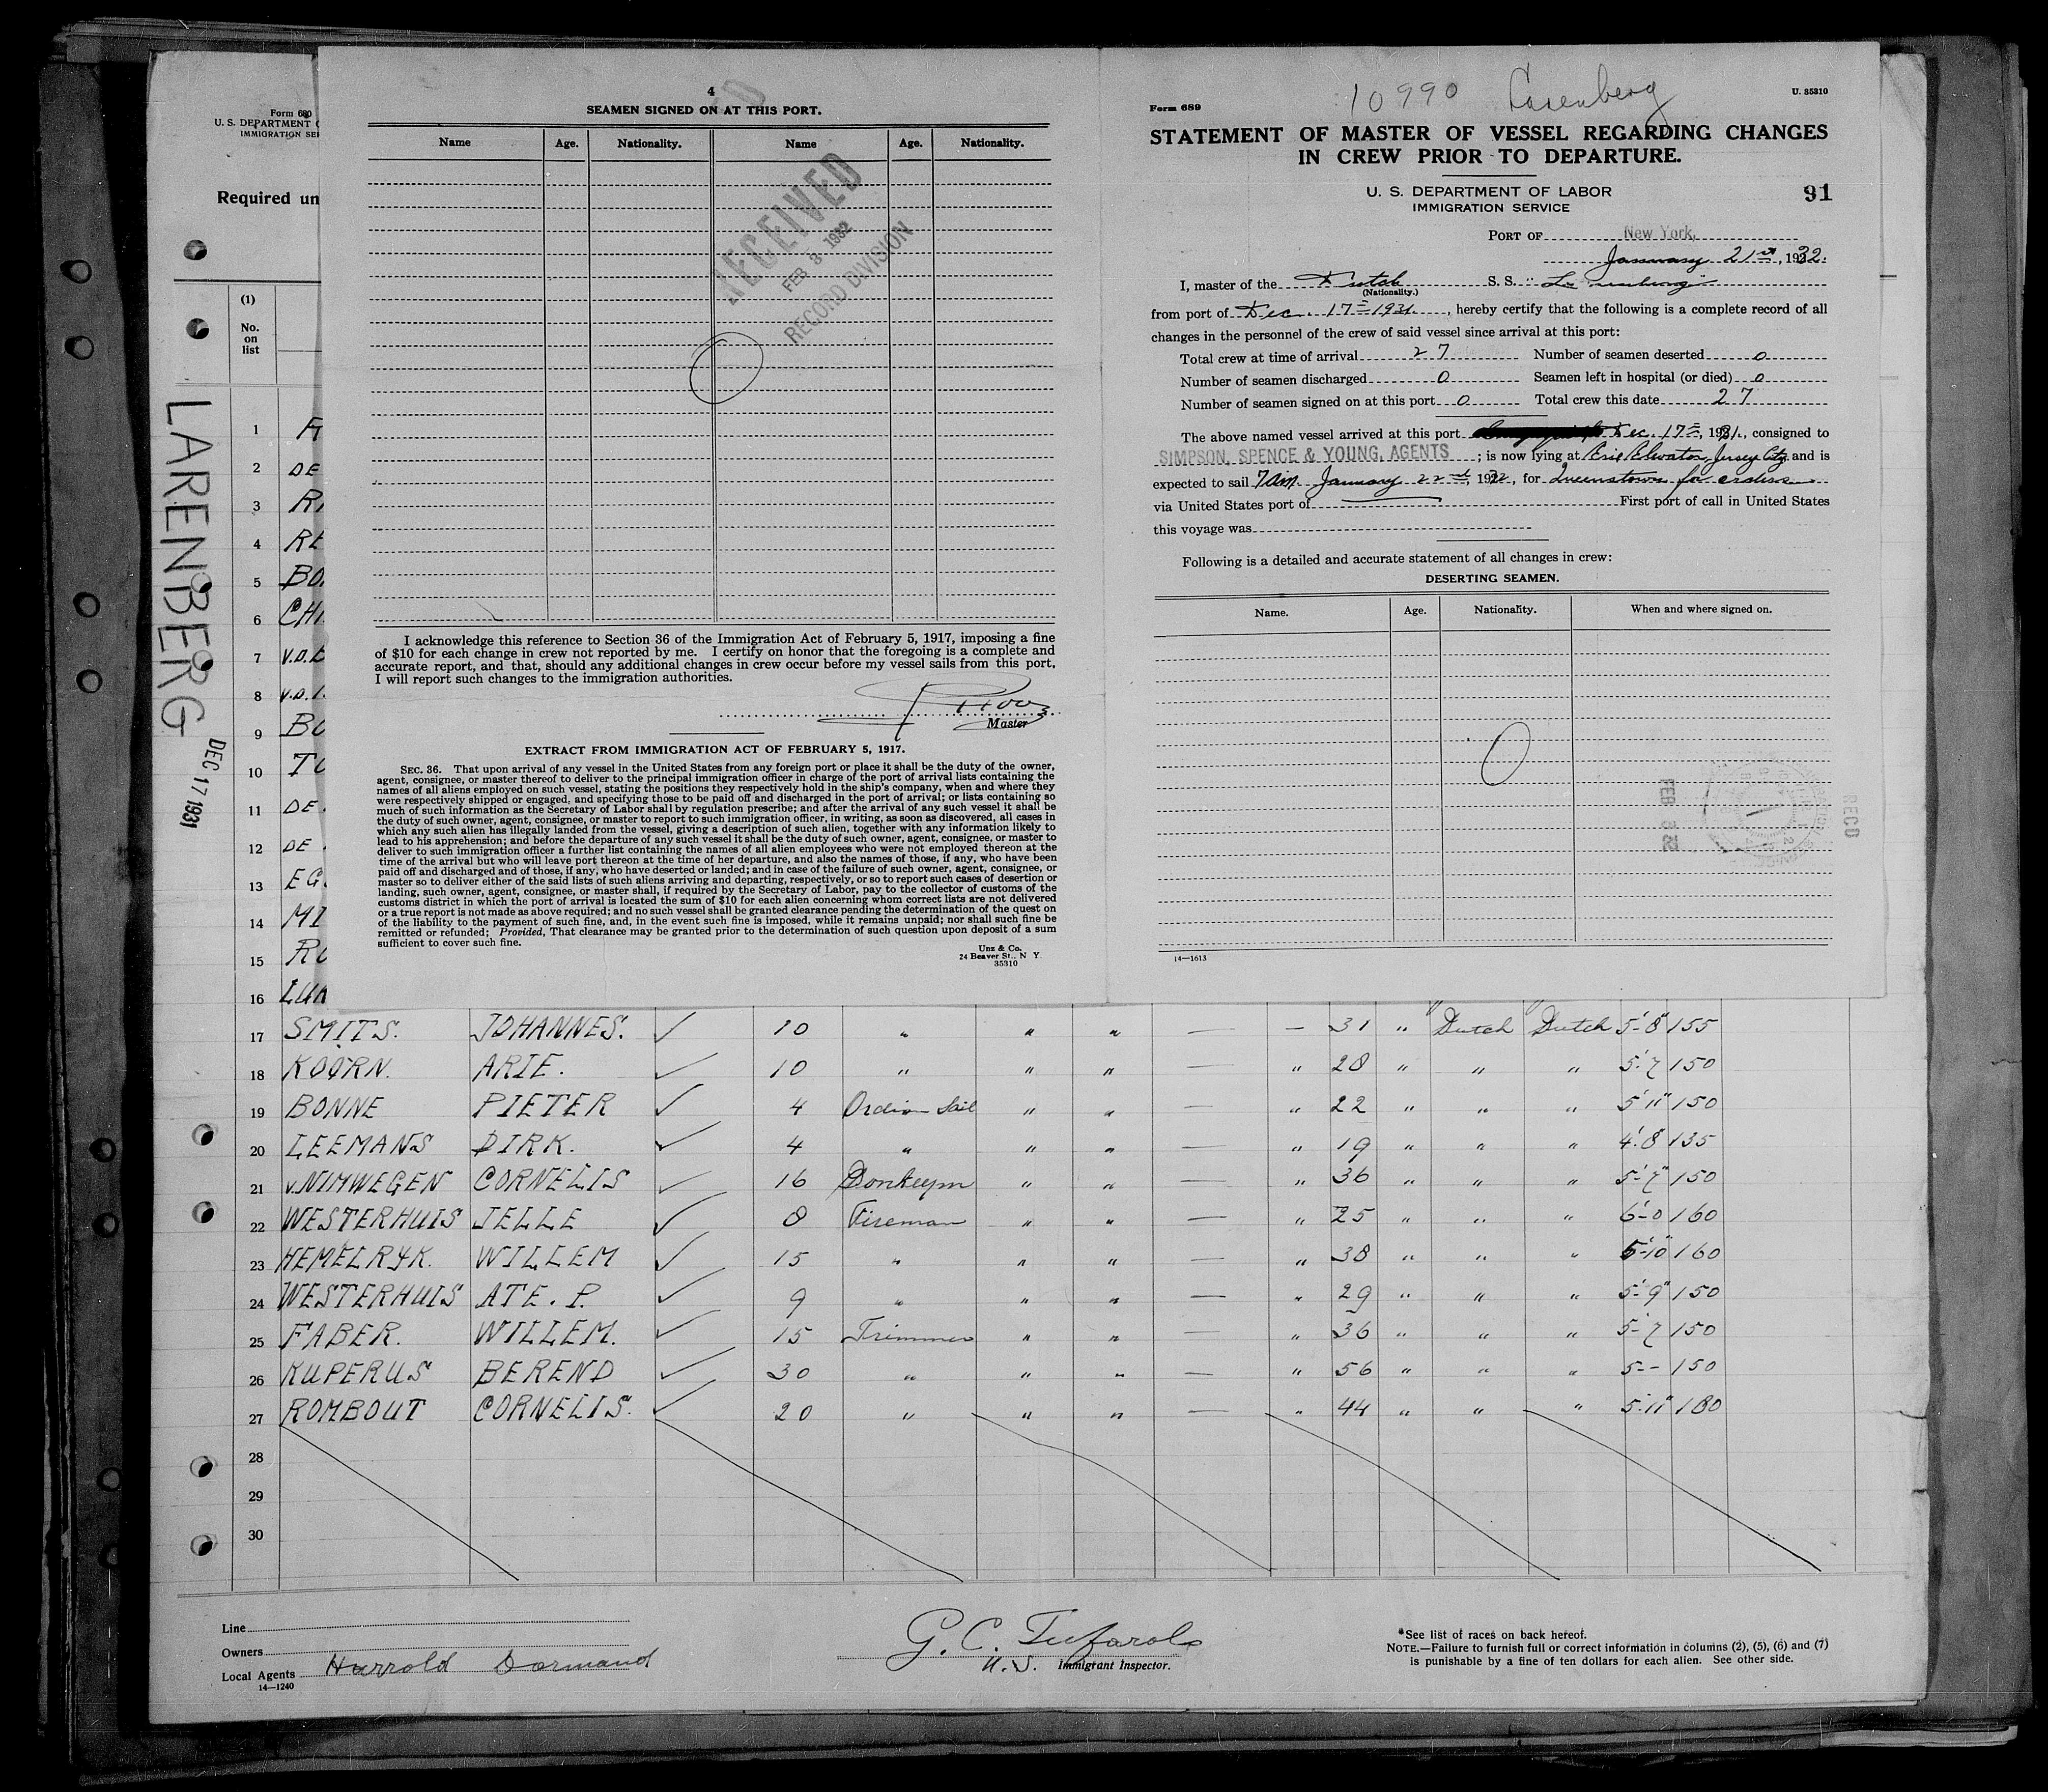 Form 680
U. S. DEPARTMENT
IMMIGRATION SER
Required un
(1)
No.
on
list
LARENBERG
DEC 17 1931
1
2 DE
3
4 RE
5
6
7
8
9
10
11 DE
12 DE
13
14 MI
15
16
4
SEAMEN SIGNED ON AT THIS PORT.
Name Age. Nationality. Name Age. Nationality.
RECEIVED
FEB 3 1932
RECORD DIVISION
I acknowledge this reference to Section 36 of the Immigration Act of February 5, 1917, imposing a fine
of $10 for each change in crew not reported by me. I certify on honor that the foregoing is a complete and
accurate report, and that, should any additional changes in crew occur before my vessel sails from this port,
I will report such changes to the immigration authorities.
Master
EXTRACT FROM IMMIGRATION ACT OF FEBRUARY 5, 1917.
SEC. 36. That upon arrival of any vessel in the United States from any foreign port or place it shall be the duty of the owner,
agent, consignee, or master thereof to deliver to the principal immigration officer in charge of the port of arrival lists containing the
names of all aliens employed on such vessel, stating the positions they respectively hold in the ship's company, when and where they
were respectively shipped or engaged, and specifying those to be paid off and discharged in the port of arrival; or lists containing so
much of such information as the Secretary of Labor shall by regulation prescribe; and after the arrival of any such vessel it shall be
the duty of such owner, agent, consignee, or master to report to such immigration officer, in writing, as soon as discovered, all cases in
which any such alien has illegally landed from the vessel, giving a description of such alien, together with any information likely to
lead to his apprehension; and before the departure of any such vessel it shall be the duty of such owner, agent, consignee, or master to
deliver to such immigration officer a further list containing the names of all alien employees who were not employed thereon at the
time of the arrival but who will leave port thereon at the time of her departure, and also the names of those, if any, who have been
paid off and discharged and of those, if any, who have deserted or landed; and in case of the failure of such owner, agent, consignee, or
master so to deliver either of the said lists of such aliens arriving and departing, respectively, or so to report such cases of desertion or
landing, such owner, agent, consignee, or master shall, if required by the Secretary of Labor, pay to the collector of customs of the
customs district in which the port of arrival is located the sum of $10 for each alien concerning whom correct lists are not delivered
or a true report is not made as above required; and no such vessel shall be granted clearance pending the determination of the quest on
of the liability to the payment of such fine, and, in the event such fine is imposed, while it remains unpaid; nor shall such fine be
remitted or refunded; Provided, That clearance may be granted prior to the determination of such question upon deposit of a sum
sufficient to cover such fine.
Unz & Co.
24 Beaver St., N Y.
35310
10990 Larenberg
U. 35310
Form 689
STATEMENT OF MASTER OF VESSEL REGARDING CHANGES
IN CREW PRIOR TO DEPARTURE.
U. S. DEPARTMENT OF LABOR
IMMIGRATION SERVICE
91
PORT OF New York,
January 21st, 1932.
I, master of the Dutch S. S. "Larenberg"
(Nationality.)
from port of Dec. 17th 1931, hereby certify that the following is a complete record of all
changes in the personnel of the crew of said vessel since arrival at this port:
Total crew at time of arrival 27 Number of seamen deserted 0
Number of seamen discharged 0 Seamen left in hospital (or died) 0
Number of seamen signed on at this port 0 Total crew this date 27
The above named vessel arrived at this port Dec. 17th, 1931, consigned to
SIMPSON, SPENCE & YOUNG, AGENTS ; is now lying at Erie Elevator, Jersey City and is
expected to sail 7 am January 22nd, 1932, for Queenstown for orders
via United States port of First port of call in United States
this voyage was
Following is a detailed and accurate statement of all changes in crew:
DESERTING SEAMEN.
Name. Age. Nationality. When and where signed on.
RECD
FEB 3 32
14—1613
17 SMITS. JOHANNES. ✓ 10 " " " — — 31 " Dutch Dutch 5'-8" 155
18 KOORN. ARIE. ✓ 10 " " " — " 28 " " " 5'-7 150
19 BONNE PIETER ✓ 4 Ordin Sail " " — " 22 " " " 5'11" 150
20 LEEMANS DIRK. ✓ 4 " " " — " 19 " " " 4'-8" 135
21 v.NIMWEGEN CORNELIS ✓ 16 Donkeym " " — " 36 " " " 5'-7" 150
22 WESTERHUIS JELLE ✓ 8 Fireman " " — " 25 " " " 6'-0 160
23 HEMELRYK. WILLEM ✓ 15 " " " — " 38 " " " 5'-10" 160
24 WESTERHUIS ATE. P. ✓ 9 " " " — " 29 " " " 5'-9" 150
25 FABER. WILLEM. ✓ 15 Trimmer " " — " 36 " " " 5'-7 150
26 KUPERUS BEREND ✓ 30 " " " — " 56 " " " 5-- 150
27 ROMBOUT CORNELIS. ✓ 20 " " " — " 44 " " " 5'-11" 180
28
29
30
Line
Owners
Local Agents Harrold Dormand
14—1240
G. C. Tufarolo
U.S. Immigrant Inspector.
*See list of races on back hereof.
NOTE.—Failure to furnish full or correct information in columns (2), (5), (6) and (7)
is punishable by a fine of ten dollars for each alien. See other side.